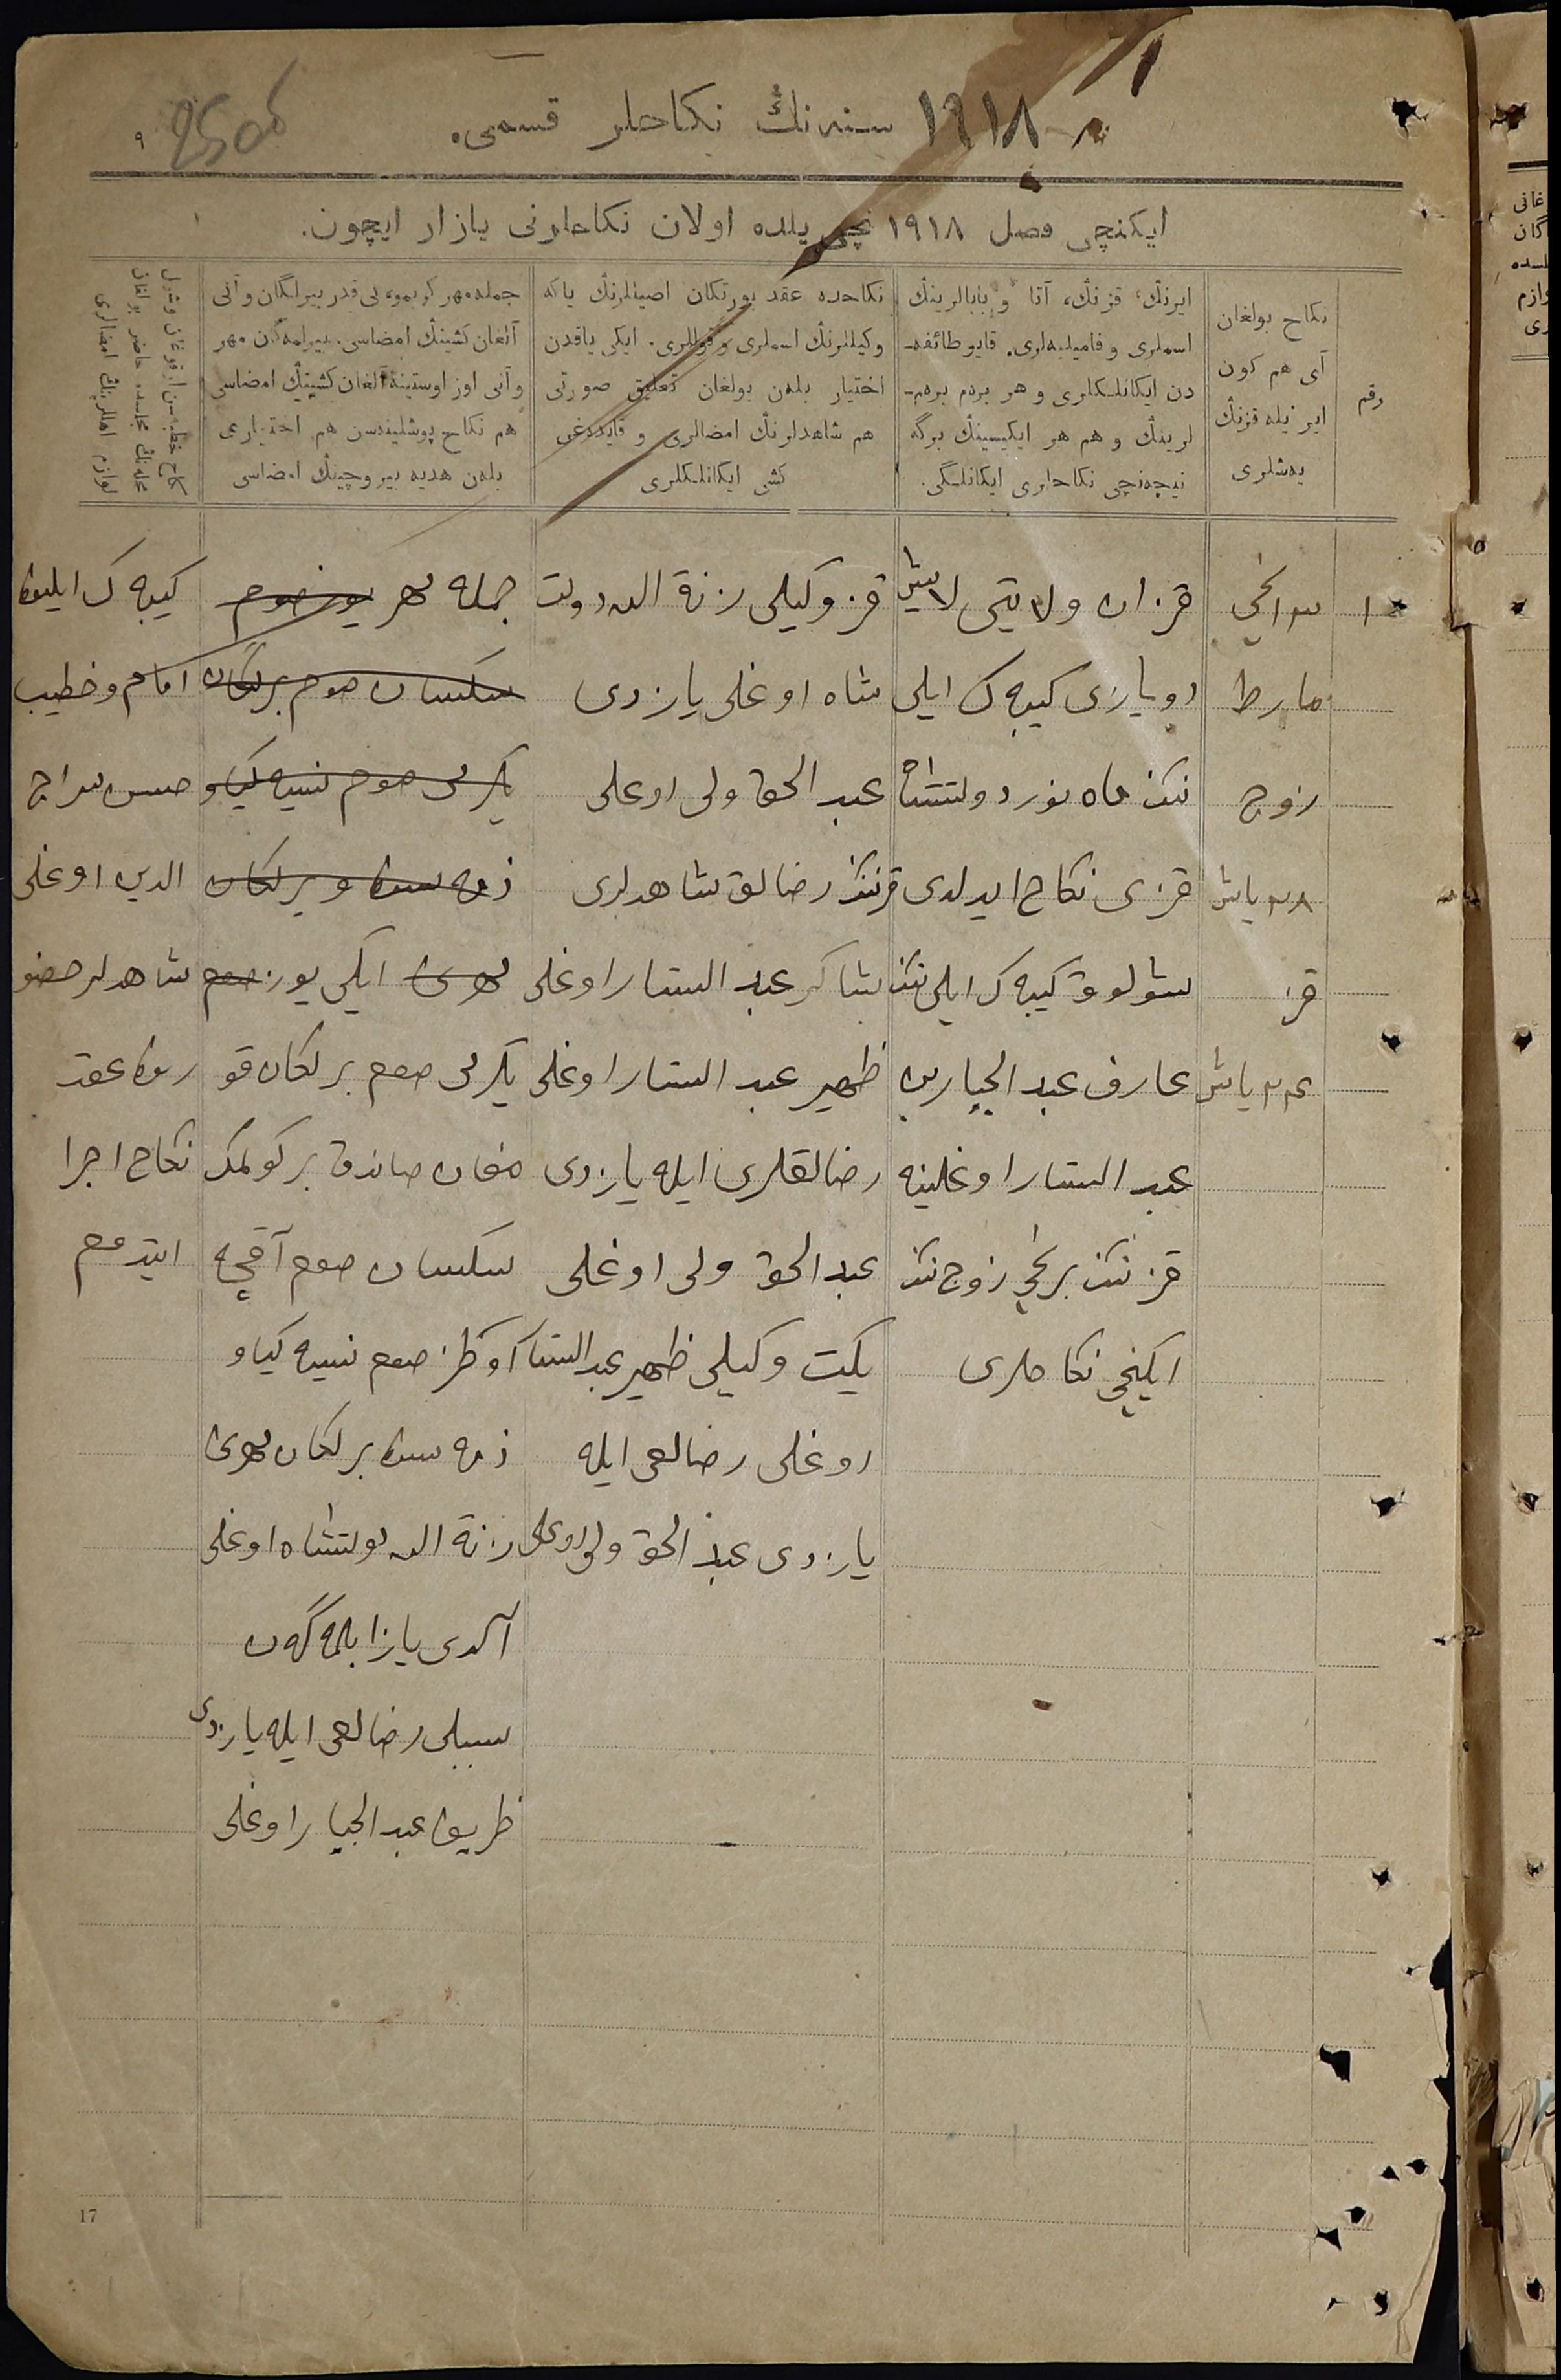 ١٩١٨ سنه نڭ نكاحلر قسمى.
٩
ایكنچی فصل ١٩١٨ نچی یلده اولان نكاحلرنی یازار ایچون.
رقم
نكاح بولغان
آی هم كون
ایر یله قزنڭ
یه‌شلری
ایرنڭ، قزنڭ، آتا و بابالرینڭ
اسملری و فامیلیه‌لری. قایو طائفه‌-
دن ایكانلكلری و هر برەم برەم-
لرینڭ و هم هر ایكیسینڭ برگه
نیچه‌نچی نكاحلری ایكانلگی.
نكاحده عقد یورتكان اصیللرنڭ یاكه
وكیللرنڭ اسملری و قوللری. ایكی یاقدن
اختیار بلەن بولغان تعلیق صورتی
هم شاهدلرنڭ امضالری و قایدەغی
كشی ایكانلكلری
جمله مهر كوبموبی قدر بیرلگان و آنی
آلغان كشینڭ امضاسی. بیرلمه‌گن مهر
و آنی اوز اوستینه آلغان كشینڭ امضاسی
هم نكاح پوشلینه‌سن هم اختیاری
بلەن هدیه بیروچینڭ امضاسی
١
٣ انچی
مارط
زوج
٣٨ یاش
قز
٢٤ یاش
قزان ولایتی لایش
دویازی كیبه ك ایلی
ننڭ ماه نور دولتشاه
قزی نكاح ایدلدی
شولوق كیبه ك ایلی ننڭ
عارف عبد الجبار بن
عبد الستار اوغلینه
قز ننڭ برنچی زوج ننڭ
ایكنچی نكاحلری
قز وكیلی زنة الله دولت
شاه اوغلی یازدی
عبد الحق ولی اوغلی
قزننڭ رضالق شاهدلری
شاكر عبد الستار اوغلی
ظهیر عبد الستار اوغلی
رضالقلری ایله یازدی
عبد الحق ولی اوغلی
یكیت وكیلی ظهیر عبد الستار
اوغلی رضالغی ایله
یازدی عبد الحق ولی اوغلی
جمله مهر یوز صوم
سكسان صوم برلكان
یكرمی صوم نسیه كیاو
ذمه سنده ویرلكان
مهری ایكی یوز صوم
یكرمی صوم برلكان قو
مغان صاندق بر كولمك
سكسان صوم آقچه
اوطز صوم نسیه كیاو
ذمه سنده برلكان مهری
زنة الله دولتشاه اوغلی
آلدی یازا بلمه‌گه‌ن
سببلی رضالغی ایله یازدی
ظریف عبد الجبار اوغلی
كیبه ك ایلینڭ
امام و خطیب
حسن سراج
الدین اوغلی
شاهدلر حضو
رنده عقد
نكاح اجرا
ایتدم
17